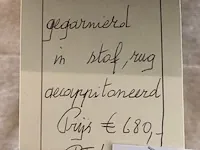 gegarnierd
in stof, rug
gecappitoneerd
Prijs € 680,-